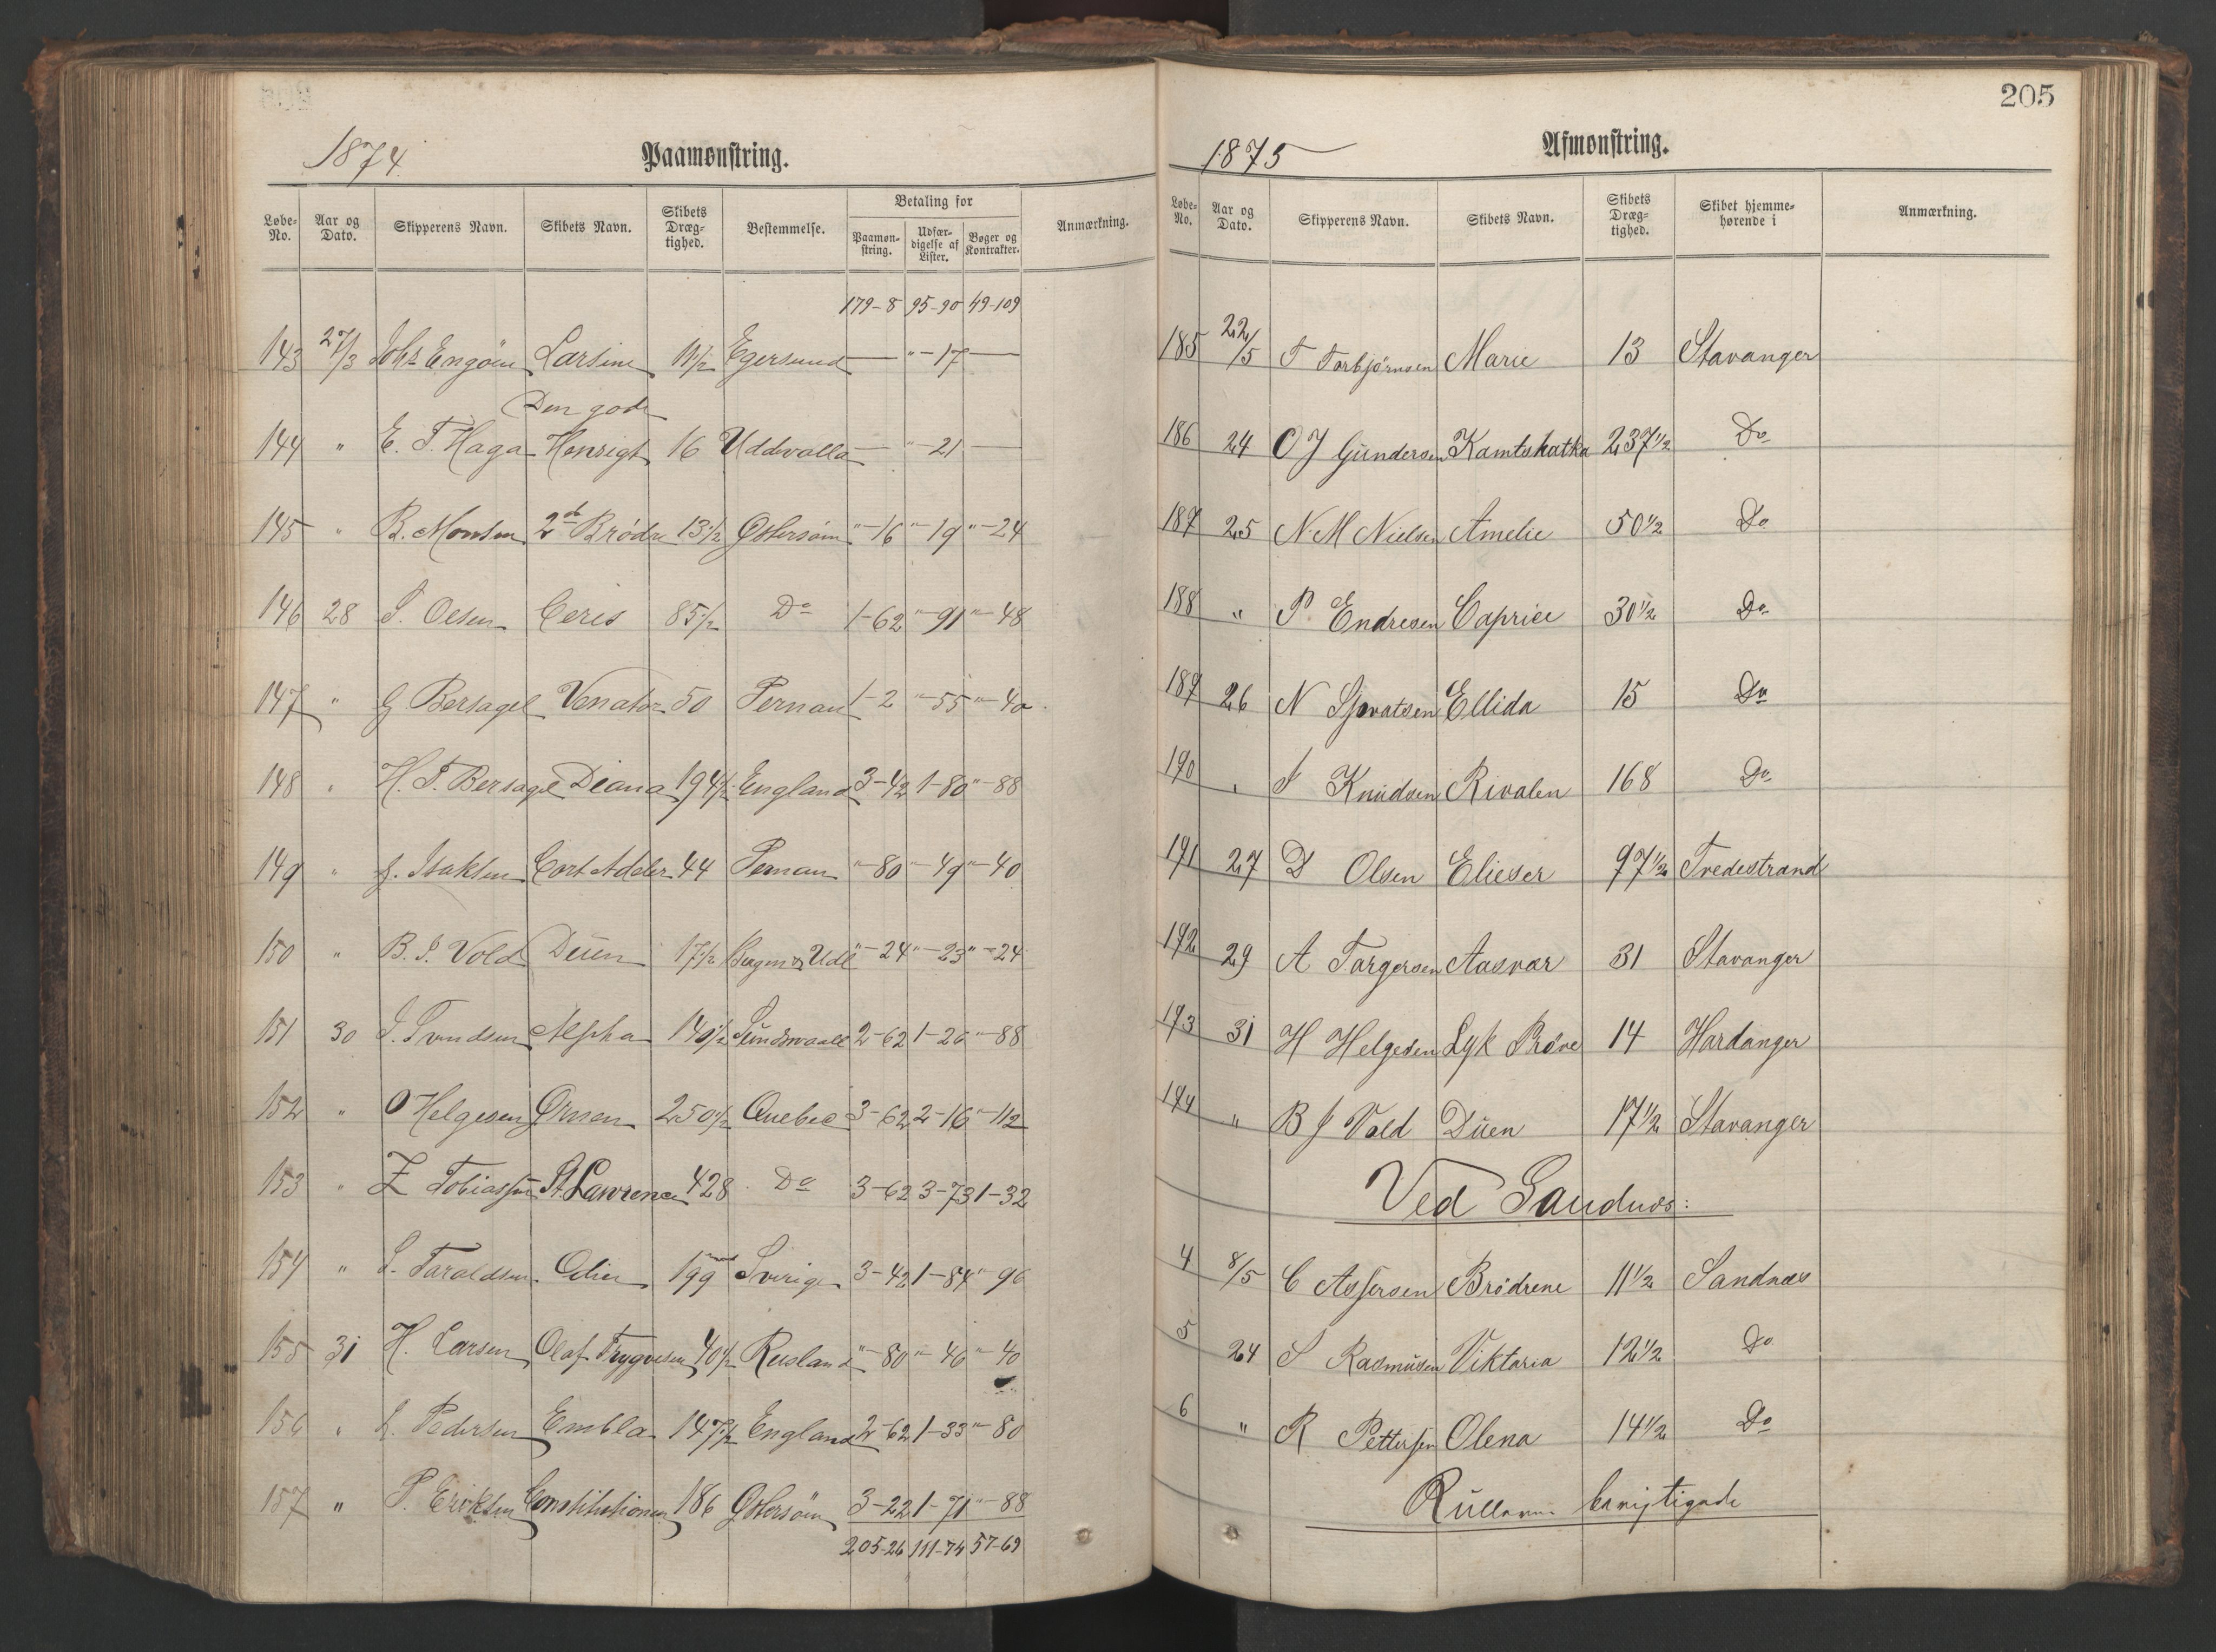 1874
Paamønstring.
Løbe-No. Aar og Dato. Skipperens Navn. Skibets Navn. Skibets Dræg-tighed. Bestemmelse. Betaling for Paamøn-string. Udfær-digelse af Lister. Bøger og Kontrakter. Anmærkning.
179-8 95-90 49-109
143 27/3 Johs Engöen Larsine 11 1/2 Egersund — "-17 —
Den gode
144 " E. T. Haga Hensigt 16 Uddevalla — "-21 —
145 " B. Monsen 2de Brødre 13 1/2 Østersøen "-16 "-19 "-24
146 28 S. Oesen Ceres 85 1/2 Do 1-62 "-91 "-48
147 " G Bersagel Venator 50 Pernau 1-2 "-55 "-40
148 " H. T. Bersagel Diana 194 1/2 England 3-42 1-80 "-88
149 " J. Isaksen Cort Adeler 44 Pernau "-80 "-49 "-40
150 " B. J. Vold Duen 17 1/2 Bergen & Udl "-24 "-23 "-24
151 30 S. Svendsen Alpha 140 1/2 Sundsvall 2-62 1-26 "-88
152 " O Helgesen Ørnen 250 1/2 Quebec 3-62 2-16 "-112
153 " Z Tobiassen St Lawrence 428 Do 3-62 3-73 1-32
154 " S. Taraldsen Odin 199 Sverige 3-42 1-84 "-96
155 31 H. Larsen Olaf Trygvesen 40 1/2 Rusland "-80 "-46 "-40
156 " L. Pedersen Embla 147 1/2 England 2-62 1-33 "-80
157 " P. Eriksen Constitutionen 186 Østersøen 3-22 1-71 "-88
205-26 111-74 57-69
205
1875
Afmønstring.
Løbe-No. Aar og Dato. Skipperens Navn. Skibets Navn. Skibets Dræg-tighed. Skibet hjemme-hørende i Anmærkning.
185 22/5 T Torbjörnsen Marie 13 Stavanger
186 24 O J Gundersen Kamtshatka 237 1/2 Do
187 25 N. M Nielsen Amelie 50 1/2 Do
188 " P. Endresen Caprice 30 1/2 Do
189 26 N Sjvatsen Ellida 15 Do
190 " S Knudsen Rivalen 168 Do
191 27 D Olsen Elieser 97 1/2 Tvedestrand
192 29 A Torgersen Aasvær 31 Stavanger
193 31 H Helgesen Lyk Prøve 14 Hardanger
194 " B J Vold Duen 17 1/2 Stavanger
Ved Sandnes:
4 8/5 C Assersen Brödrene 11 1/2 Sandnæs
5 24 S Rasmusen Viktoria 12 1/2 Do
6 " R Pettersen Olena 14 1/2 Do
Rullerne berigtigede